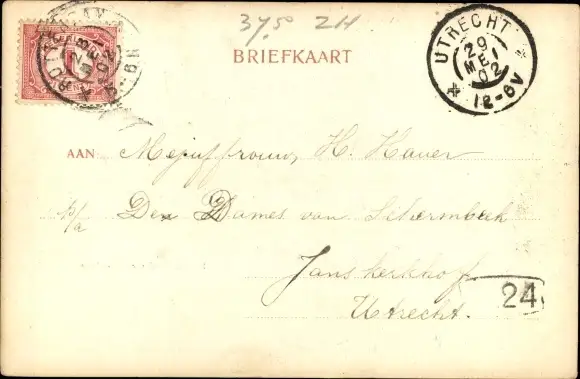 37.5 ZH
BRIEFKAART
UTRECHT
29
MEI
02
12-6V
AAN Mejuffrouw, H. Hauer
p/a Den Dames van Schermbeek
Janskerkhof
24
Utrecht.